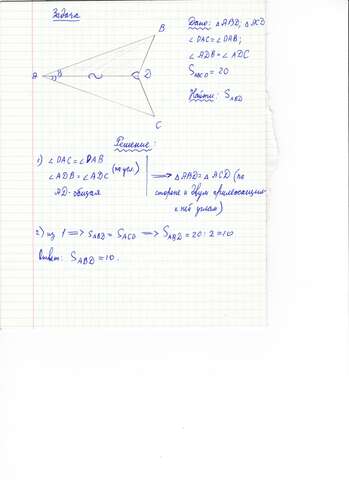 Задача
B
A
D
C
Дано: △ABD; △ACD
∠DAC=∠DAB;
∠ADB=∠ADC
S ABCD = 20
Найти: S ABD
Решение:
1) ∠DAC=∠DAB
∠ADB=∠ADC (по усл.)
AD-общая
⟹ △ABD=△ACD (по
стороне и двум прилежащим
к ней углам)
2) из 1 ⟹ S ABD = S ACD ⟹ S ABD = 20:2=10
Ответ: S ABD =10.